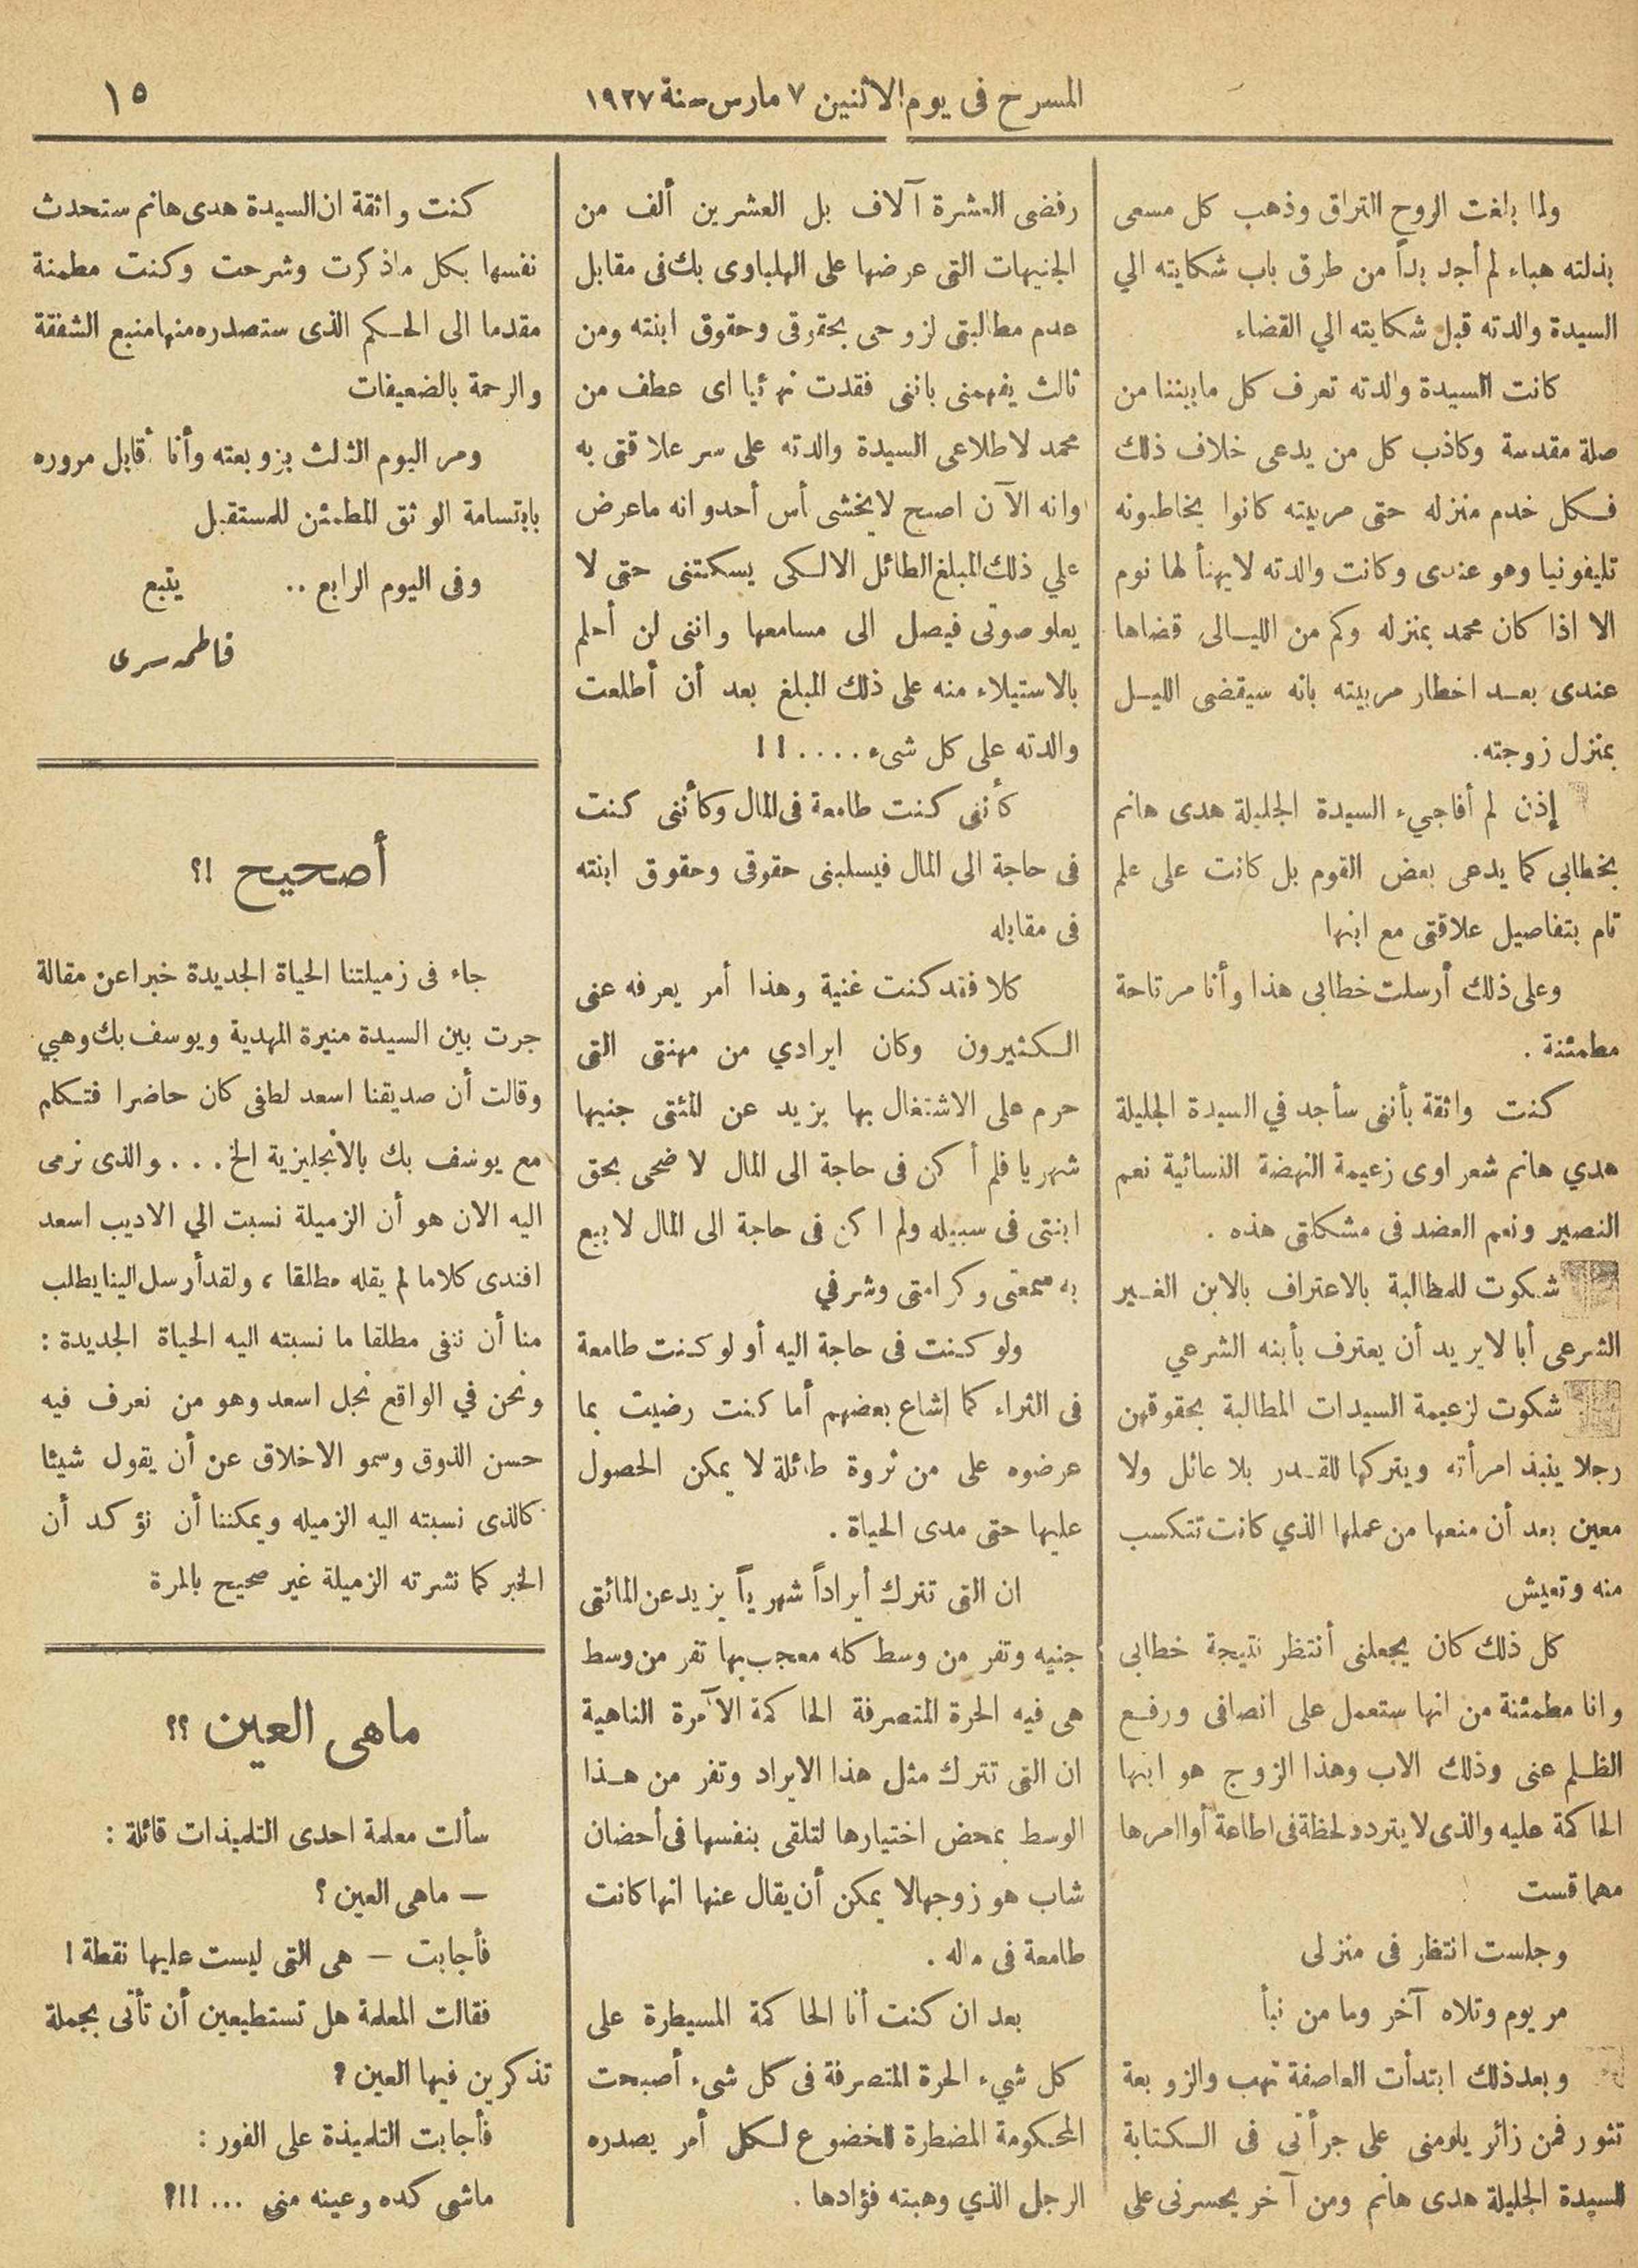 المسرح فى يوم الاثنين ٧ مارس سنة ١٩٢٧
١٥
ولما بلغت الروح التراق وذهب كل مسعى
بذلته هباء لم أجد بداً من طرق باب شكايته الي
السيدة والدته قبل شكايته الي القضاء
كانت السيدة والدته تعرف كل مابيننا من
صلة مقدسة وكاذب كل من يدعى خلاف ذلك
فكل خدم منزله حتى مربيته كانوا يخاطبونه
تليفونيا وهو عندى وكانت والدته لايهنأ لها نوم
الا اذا كان محمد بمنزله وكم من الليالى قضاها
عندى بعد اخطار مربيته بانه سيقضى الليل
بمنزل زوجته.
إذن لم أفاجيء السيدة الجليلة هدى هانم
بخطابى كما يدعى بعض القوم بل كانت على علم
تام بتفاصيل علاقتى مع ابنها
وعلى ذلك أرسلت خطابى هذا وأنا مرتاحة
مطمئنة .
كنت واثقة بأننى سأجد في السيدة الجليلة
هدي هانم شعراوى زعيمة النهضة النسائية نعم
النصير ونعم العضد فى مشكلتى هذه .
شكوت للمطالبة بالاعتراف بالابن الغير
الشرعى أبا لا يريد أن يعترف بأبنه الشرعي
شكوت لزعيمة السيدات المطالبة بحقوقهن
رجلا ينبذ امرأته ويتركها للقدر بلا عائل ولا
معين بعد أن منعها من عملها الذي كانت تتكسب
منه وتعيش
كل ذلك كان يجعلنى أنتظر نتيجة خطابى
وانا مطمئنة من انها ستعمل على انصافى ورفع
الظلم عنى وذلك الاب وهذا الزوج هو ابنها
الحاكمة عليه والذى لا يتردد لحظة فى اطاعة أوامرها
مهما قست
وجلست انتظر فى منزلى
مر يوم وتلاه آخر وما من نبأ
وبعد ذلك ابتدأت العاصفة تهب والزوبعة
تثور فمن زائر يلومنى على جرأتى فى الكتابة
للسيدة الجليلة هدى هانم ومن آخر يحسرنى على
رفضى العشرة آلاف بل العشرين ألف من
الجنيهات التى عرضها على الهلباوى بك فى مقابل
عدم مطالبتى لزوجى بحقوقى وحقوق ابنته ومن
ثالث يفهمنى باننى فقدت نهائيا اى عطف من
محمد لاطلاعى السيدة والدته على سر علاقتى به
وانه الآن اصبح لايخشى أمر أحد وانه ماعرض
علي ذلك المبلغ الطائل الا لكى يسكتنى حتى لا
يعلو صوتى فيصل الى مسامعها واننى لن أحلم
بالاستيلاء منه على ذلك المبلغ بعد أن أطلعت
والدته على كل شىء . . . . . ! !
كأننى كنت طامعة فى المال وكأننى كنت
فى حاجة الى المال فيسلبنى حقوقى وحقوق ابنته
فى مقابله
كلا فقد كنت غنية وهذا أمر يعرفه عنى
الكثيرون وكان ايرادي من مهنتى التى
حرم على الاشتغال بها يزيد عن المئتى جنيها
شهريا فلم أكن فى حاجة الى المال لاضحى بحق
ابنتى فى سبيله ولم اكن فى حاجة الى المال لا بيع
به سمعتى وكرامتى وشرفي
ولو كنت فى حاجة اليه أو لو كنت طامعة
فى الثراء كما اشاع بعضهم أما كنت رضيت بما
عرضوه على من ثروة طائلة لا يمكن الحصول
عليها حتى مدى الحياة .
ان التى تترك أيراداً شهرياً يزيد عن المائتى
جنيه وتفر من وسط كله معجب بها تفر من وسط
هى فيه الحرة المتصرفة الحاكمة الآمرة الناهية
ان التى تترك مثل هذا الايراد وتفر من هذا
الوسط بمحض اختيارها لتلقى بنفسها فى أحضان
شاب هو زوجها لا يمكن أن يقال عنها انها كانت
طامعة فى ماله .
بعد ان كنت أنا الحاكمة المسيطرة على
كل شيء الحرة المتصرفة فى كل شىء أصبحت
المحكومة المضطرة للخضوع لكل أمر يصدره
الرجل الذي وهبته فؤادها .
كنت واثقة ان السيدة هدى هانم ستحدث
نفسها بكل ماذكرت وشرحت وكنت مطمنة
مقدما الى الحكم الذى ستصدره منها منبع الشفقة
والرحمة بالضعيفات
ومر اليوم الثالث بزوبعته وأنا أقابل مروره
بابتسامة الوثق المطمئن للمستقبل
وفى اليوم الرابع .. يتبع
فاطمه سرى
أصحيح !؟
جاء فى زميلتنا الحياة الجديدة خبرا عن مقالة
جرت بين السيدة منيرة المهدية ويوسف بك وهبي
وقالت أن صديقنا اسعد لطفى كان حاضرا فتكلم
مع يوسف بك بالانجليزية الخ . . . والذى نرمى
اليه الان هو أن الزميلة نسبت الي الاديب اسعد
افندى كلاما لم يقله مطلقا ، ولقد أرسل الينا يطلب
منا أن ننفى مطلقا ما نسبته اليه الحياة الجديدة :
ونحن في الواقع نجل اسعد وهو من نعرف فيه
حسن الذوق وسمو الاخلاق عن أن يقول شيئا
كالذى نسبته اليه الزميله ويمكننا أن نؤكد أن
الخبر كما نشرته الزميلة غير صحيح بالمرة
ماهى العين ؟؟
سألت معلمة احدى التلميذات قائلة :
— ماهى العين ؟
فأجابت — هى التى ليست عليها نقطة !
فقالت المعلمة هل تستطيعين أن تأتى بجملة
تذكرين فيها العين ?
فأجابت التلميذة على الفور :
ماشى كده وعينه منى ... !!?